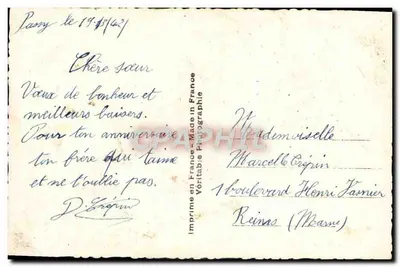 Passy le 19/8/42
Chère sœur
Vœux de bonheur et
meilleurs baisers.
Pour ton anniversaire
ton frère qui t'aime
et ne t'oublie pas.
D. Crépin
Imprimé en France - Made in France
Véritable Photographie
Mademoiselle
Marcelle Crépin
1 boulevard Henri Vasnier
Reims (Marne)